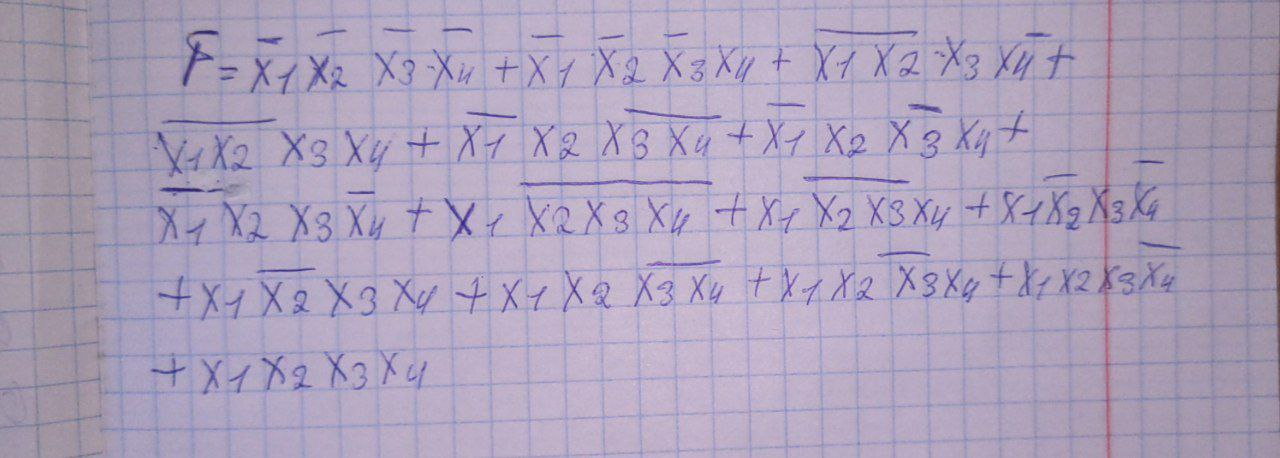 F̅ = x̅1 x̅2 x̅3 · x̅4 + x̅1 x̅2 x̅3 x4 + x̅1̅ ̅x̅2̅ · x3 x̅4 +
x̅1̅x̅2̅ x3 x4 + x̅1̅ x2 x̅3̅ ̅x̅4̅ + x̅1 x2 x̅3 x4 +
x̅1̅ x2 x3 x̅4 + x1 x̅2̅x̅3̅ ̅x̅4̅ + x1 x̅2̅ ̅x̅3̅ x4 + x1 x̅2 x3 x̅4
+ x1 x̅2̅ x3 x4 + x1 x2 x̅3̅ ̅x̅4̅ + x1 x2 x̅3 x4 + x1 x2 x3 x̅4
+ x1 x2 x3 x4